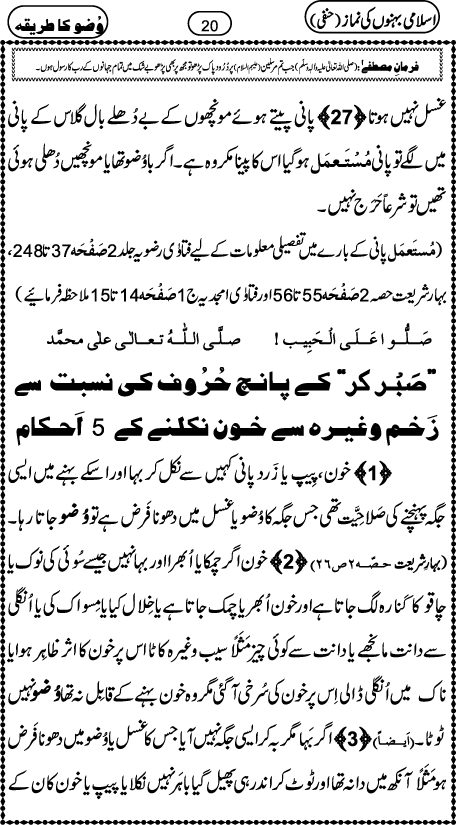 اسلامی بہنوں کی نماز (حنفی)
20
وُضو کا طریقہ
فرمانِ مصطفےٰ: (صلی اللہ تعالیٰ علیہ واٰلہٖ وسلّم) جب تم مرسلین (علیہم السلام) پر دُرُود پاک پڑھو تو مجھ پر بھی پڑھو بے شک میں تمام جہانوں کے رب کا رسول ہوں۔
غسل نہیں ہوتا ﴿27﴾ پانی پیتے ہوئے مونچھوں کے بے دُھلے بال گلاس کے پانی
میں لگے تو پانی مُسْتَعمَل ہو گیا اس کا پینا مکروہ ہے۔ اگر باوُضو تھا یا مونچھیں دُھلی ہوئی
تھیں تو شرعاً حَرَج نہیں۔
(مُستَعمَل پانی کے بارے میں تفصیلی معلومات کے لیے فتاوٰی رضویہ جلد 2 صَفْحَہ 37 تا 248،
بہارِ شریعت حصہ 2 صَفْحَہ 55 تا 56 اور فتاوٰی امجدیہ ج 1 صَفْحَہ 14 تا 15 ملاحظہ فرمائیے)
صَلُّوا عَلَی الْحَبِیب! صلَّی اللّٰہُ تعالٰی علٰی محمَّد
"صَبْر کر" کے پانچ حُرُوف کی نسبت سے
زَخم وغیرہ سے خون نکلنے کے 5 اَحکام
﴿1﴾ خون، پیپ یا زَرد پانی کہیں سے نکل کر بہا اور اسکے بہنے میں ایسی
جگہ پہنچنے کی صَلاحِیَّت تھی جس جگہ کا وُضو یا غسل میں دھونا فَرض ہے تو وُضو جاتا رہا۔
(بہارِ شریعت حصّہ ۲ ص ۲۶) ﴿2﴾ خون اگر چمکا یا اُبھرا اور بہا نہیں جیسے سُوئی کی نوک یا
چاقو کا کَنارہ لگ جاتا ہے اور خون اُبھر یا چمک جاتا ہے یا خِلال کیا یا مِسواک کی یا اُنگلی
سے دانت مانجھے یا دانت سے کوئی چیز مَثَلاً سیب وغیرہ کاٹا اس پر خون کا اثر ظاہِر ہوا یا
ناک میں اُنگلی ڈالی اِس پر خون کی سُرخی آ گئی مگر وہ خون بہنے کے قابل نہ تھا وُضو نہیں
ٹوٹا۔ (اَیضاً) ﴿3﴾ اگر بہا مگر بہ کر ایسی جگہ نہیں آیا جس کا غسل یا وُضو میں دھونا فَرض
ہو مَثَلاً آنکھ میں دانہ تھا اور ٹوٹ کر اندر ہی پھیل گیا باہَر نہیں نکلا یا پیپ یا خون کان کے